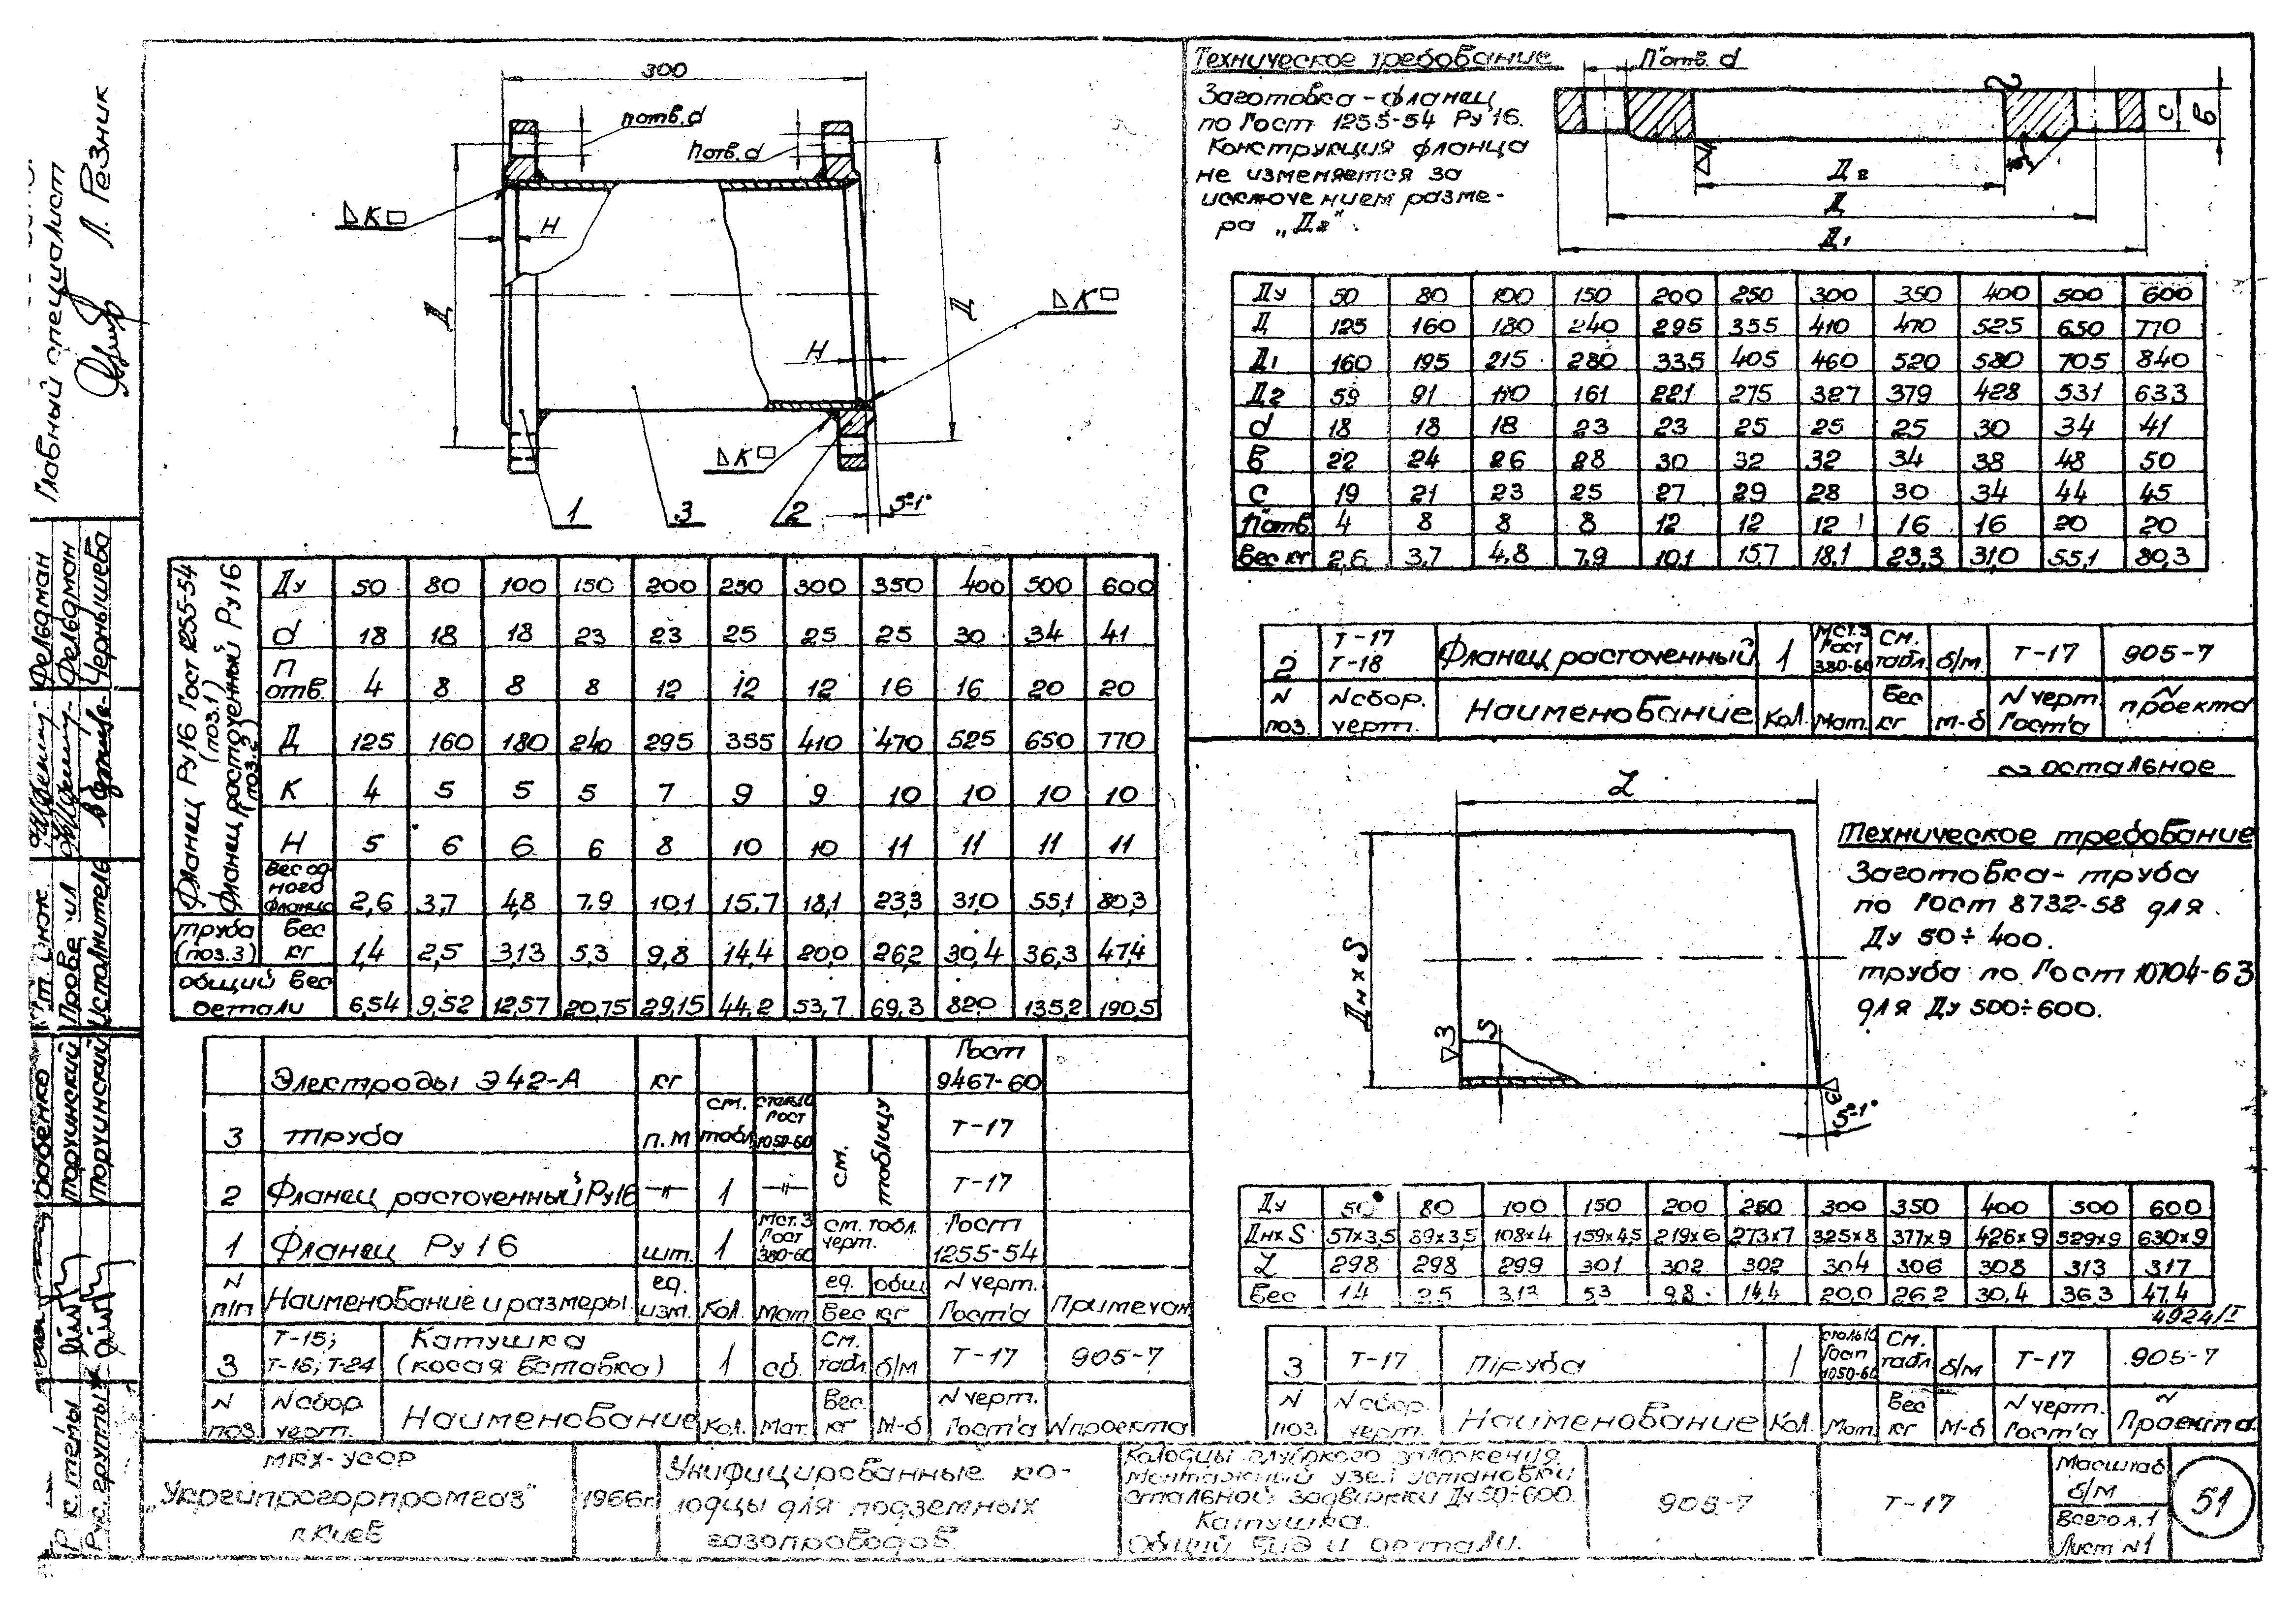 300
n отв. d
n отв. d
ΔK
H
Д
Д
ΔK
H
ΔK
1
3
2
5°-1°
Фланец Ру16 Гост 1255-54
(поз.1)
Фланец расточенный Ру16
(поз.2)
Ду 50 80 100 150 200 250 300 350 400 500 600
d 18 18 18 23 23 25 25 25 30 34 41
п отв. 4 8 8 8 12 12 12 16 16 20 20
Д 125 160 180 240 295 355 410 470 525 650 770
К 4 5 5 5 7 9 9 10 10 10 10
Н 5 6 6 6 8 10 10 11 11 11 11
Вес одного фланца 2,6 3,7 4,8 7,9 10,1 15,7 18,1 23,3 31,0 55,1 80,3
труба (поз.3) Вес кг 1,4 2,5 3,13 5,3 9,8 14,4 20,0 26,2 30,4 36,3 47,4
общий вес детали 6,54 9,52 12,57 20,75 29,15 44,2 53,7 69,3 82,0 135,2 190,5
Электроды Э42-А кг Гост 9467-60
3 труба п.м см. табл. сталь10 Гост 1050-60 Т-17
см. таблицу
2 Фланец расточенный Ру16 —〃— 1 —〃— Т-17
1 Фланец Ру16 шт. 1 Мст.3 Гост 380-60 см. табл. черт. Гост 1255-54
N п/п Наименование и размеры ед. изм. Кол. Мат. ед. общ. Вес кг N черт. Гост'а Примечан
3 Т-15; Т-18; Т-24 Катушка (косая вставка) 1 сб. См. табл. б/м Т-17 905-7
N поз. N сбор. черт. Наименование Кол. Мат. Вес кг М-б N черт. Гост'а N проекта
Техническое требование
Заготовка-фланец
по Гост 1255-54 Ру 16.
Конструкция фланца
не изменяется за
исключением разме-
ра „Д2".
п отв. d
с
в
Д2
Д
Д1
Ду 50 80 100 150 200 250 300 350 400 500 600
Д 125 160 180 240 295 355 410 470 525 650 770
Д1 160 195 215 280 335 405 460 520 580 705 840
Д2 59 91 110 161 221 275 327 379 428 531 633
d 18 18 18 23 23 25 25 25 30 34 41
В 22 24 26 28 30 32 32 34 38 48 50
С 19 21 23 25 27 29 28 30 34 44 45
п отв. 4 8 8 8 12 12 12 16 16 20 20
Вес кг 2,6 3,7 4,8 7,9 10,1 15,7 18,1 23,3 31,0 55,1 80,3
2 Т-17 Т-18 Фланец расточенный 1 Мст.3 Гост 380-60 См. табл. б/м Т-17 905-7
N поз. N сбор. черт. Наименование Кол. Мат. Вес кг М-б N черт. Гост'а N проекта
∾ остальное
L
Дн x S
▽3
S
▽3
5°-1°
Техническое требование
Заготовка-труба
по Гост 8732-58 для
Ду 50÷400.
труба по Гост 10704-63
для Ду 500÷600.
Ду 50 80 100 150 200 250 300 350 400 500 600
Дн x S 57x3,5 89x3,5 108x4 159x4,5 219x6 273x7 325x8 377x9 426x9 529x9 630x9
L 298 298 299 301 302 302 304 306 308 313 317
Вес 1,4 2,5 3,13 5,3 9,8 14,4 20,0 26,2 30,4 36,3 47,4
4924/I
3 Т-17 Труба 1 сталь10 Гост 1050-60 См. табл. б/м Т-17 905-7
N поз. N сбор. черт. Наименование Кол. Мат. Вес кг М-б N черт. Гост'а N Проекта
МКХ-УССР
„Укргипрогорпромгаз"
г. Киев
1966г.
Унифицированные ко-
лодцы для подземных
газопроводов
Колодцы глубокого заложения.
Монтажный узел установки
стальной задвижки Ду50÷600.
Катушка.
Общий вид и детали.
905-7
Т-17
Масштаб
б/м
Всего л. 1
Лист N1
51
Главный специалист
Л. Резник
Фельдман
Фельдман
Чернышева
Исполнитель
Торчинский
Торчинский
Рук. группы